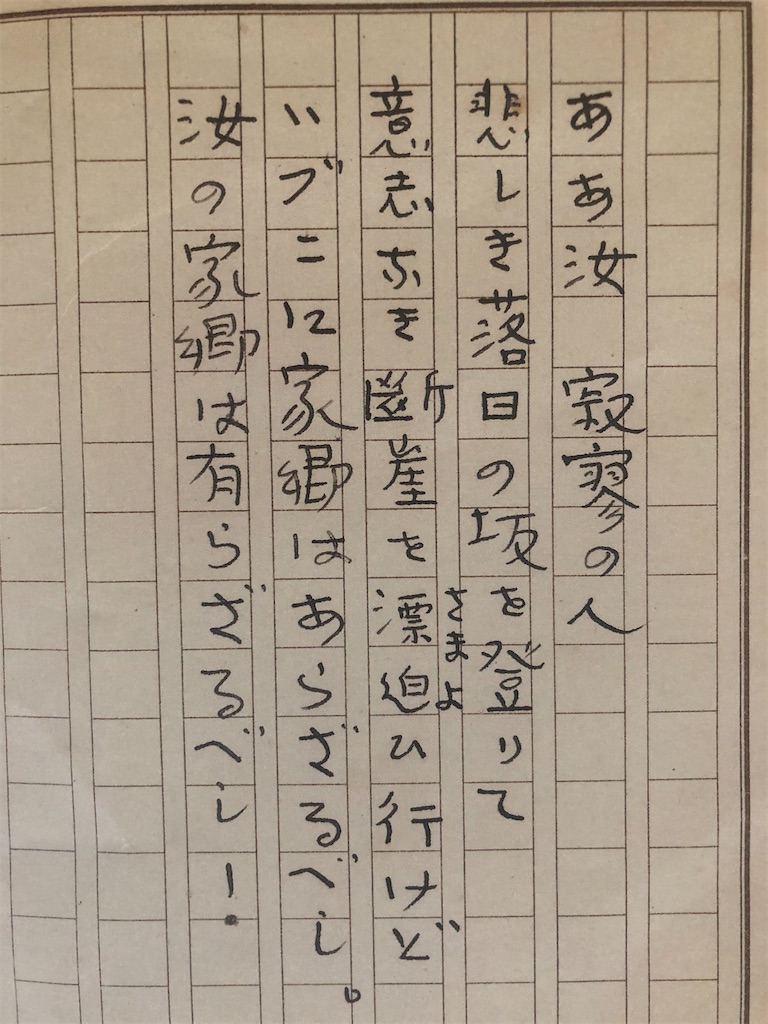 ああ汝　寂寥の人
悲しき落日の坂を登りて
意志なき斷崖を漂迫ひ行けど
さまよ
いづこに家郷はあらざるべし。
汝の家郷は有らざるべし！